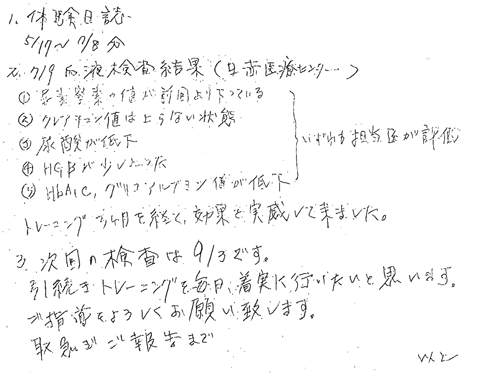 1. 体験日誌
5/17〜7/8分
2. 7/9 血液検査結果(日赤医療センター…)
① 尿素窒素の値が前回より下っている
② クレアチニン値は上らない状態
③ 尿酸が低下
④ HGBが少し
⑤ HbA1C, グリコアルブミン値が低下
いずれも担当医が評価
トレーニング3ヶ月を経て、効果を実感して来ました。
3. 次回の検査は9/3です。
引続きトレーニングを毎日、着実に行いたいと思います。
ご指導をよろしくお願い致します。
取急ぎご報告まで